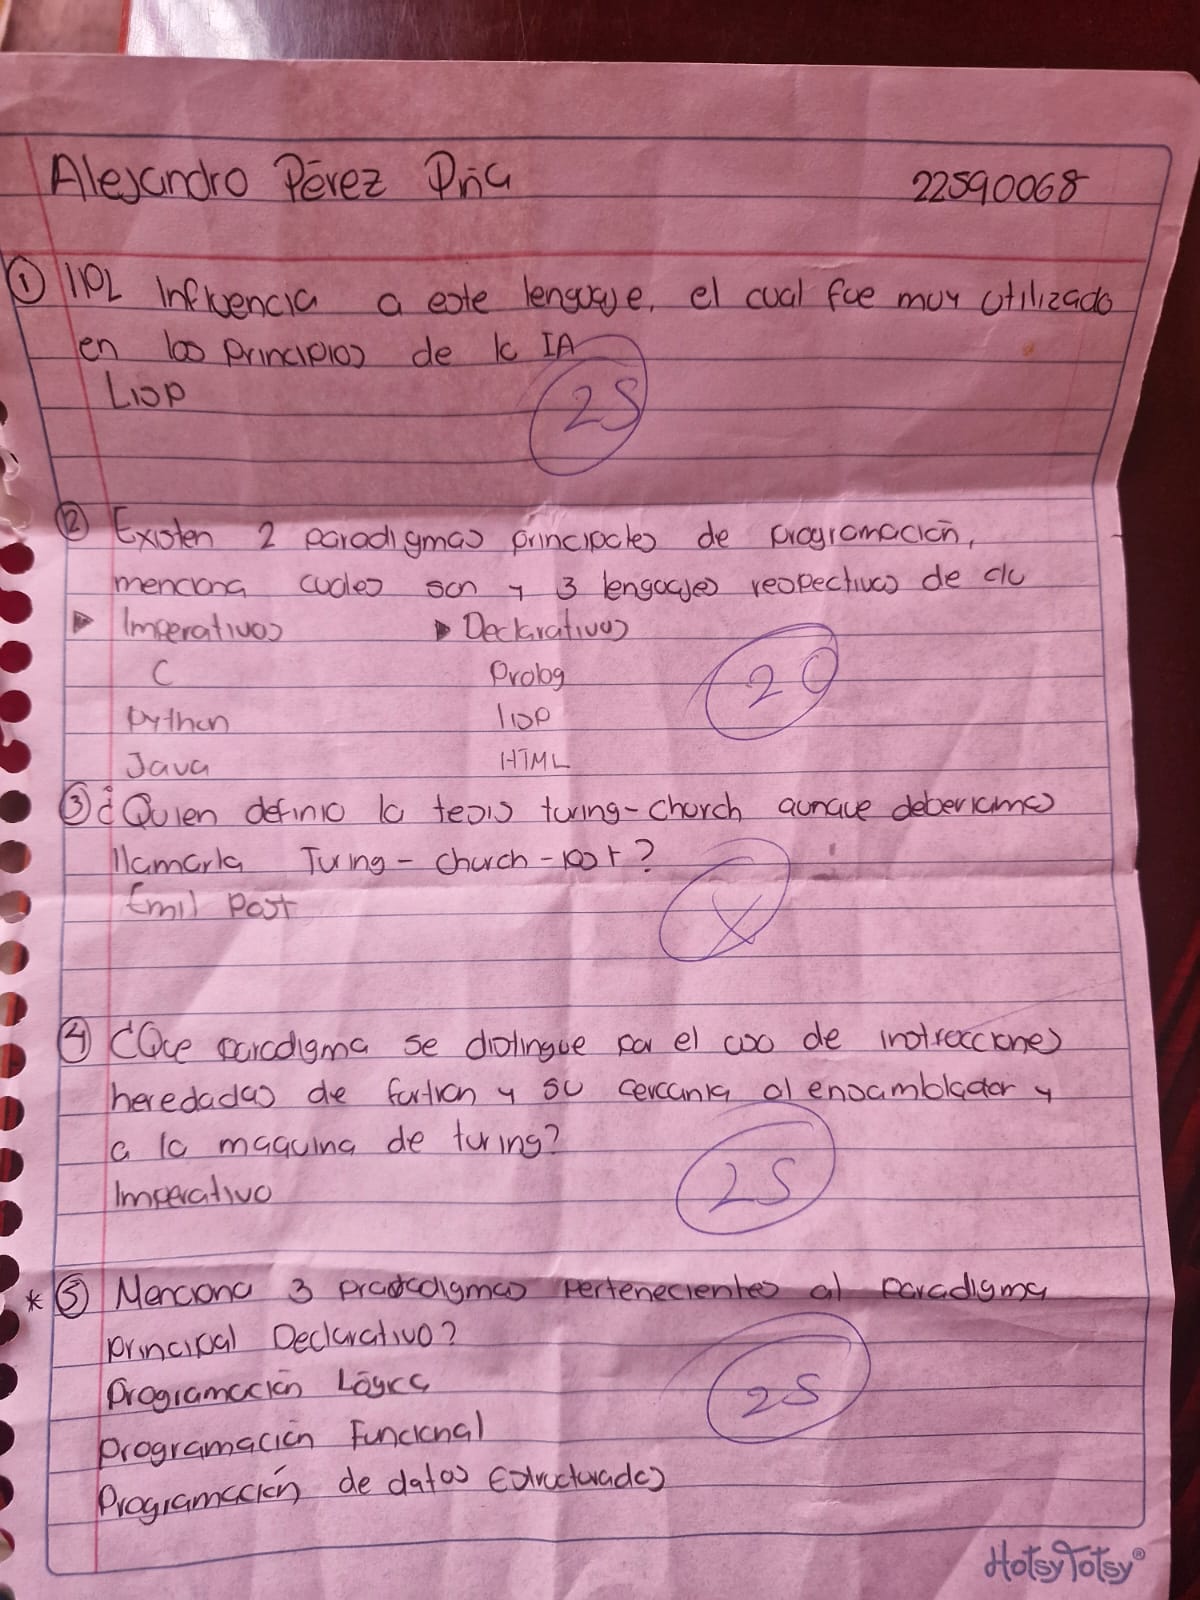 Alejandro Pérez Piña 22590068
① IPL Influencia a este lenguaje, el cual fue muy utilizado
en los principios de la IA
Lisp
25
② Existen 2 paradigmas principales de programación,
menciona cuales son y 3 lenguajes respectivos de c/u
▶ Imperativos ▶ Declarativos
C Prolog
20
Python lisp
Java HTML
③ ¿Quien definio la tesis turing-church aunque deberiamos
llamarla Turing-church-post?
Emil Post
X
④ ¿Que paradigma se distingue por el uso de instrucciones
heredadas de fortran y su cercania al ensamblador y
a la maquina de turing?
Imperativo
25
* ⑤ Menciona 3 pertenecientes al paradigma
principal Declarativo?
Programación Lógica
25
Programación Funcional
Programación de datos Estructurados
HotsyTotsy®